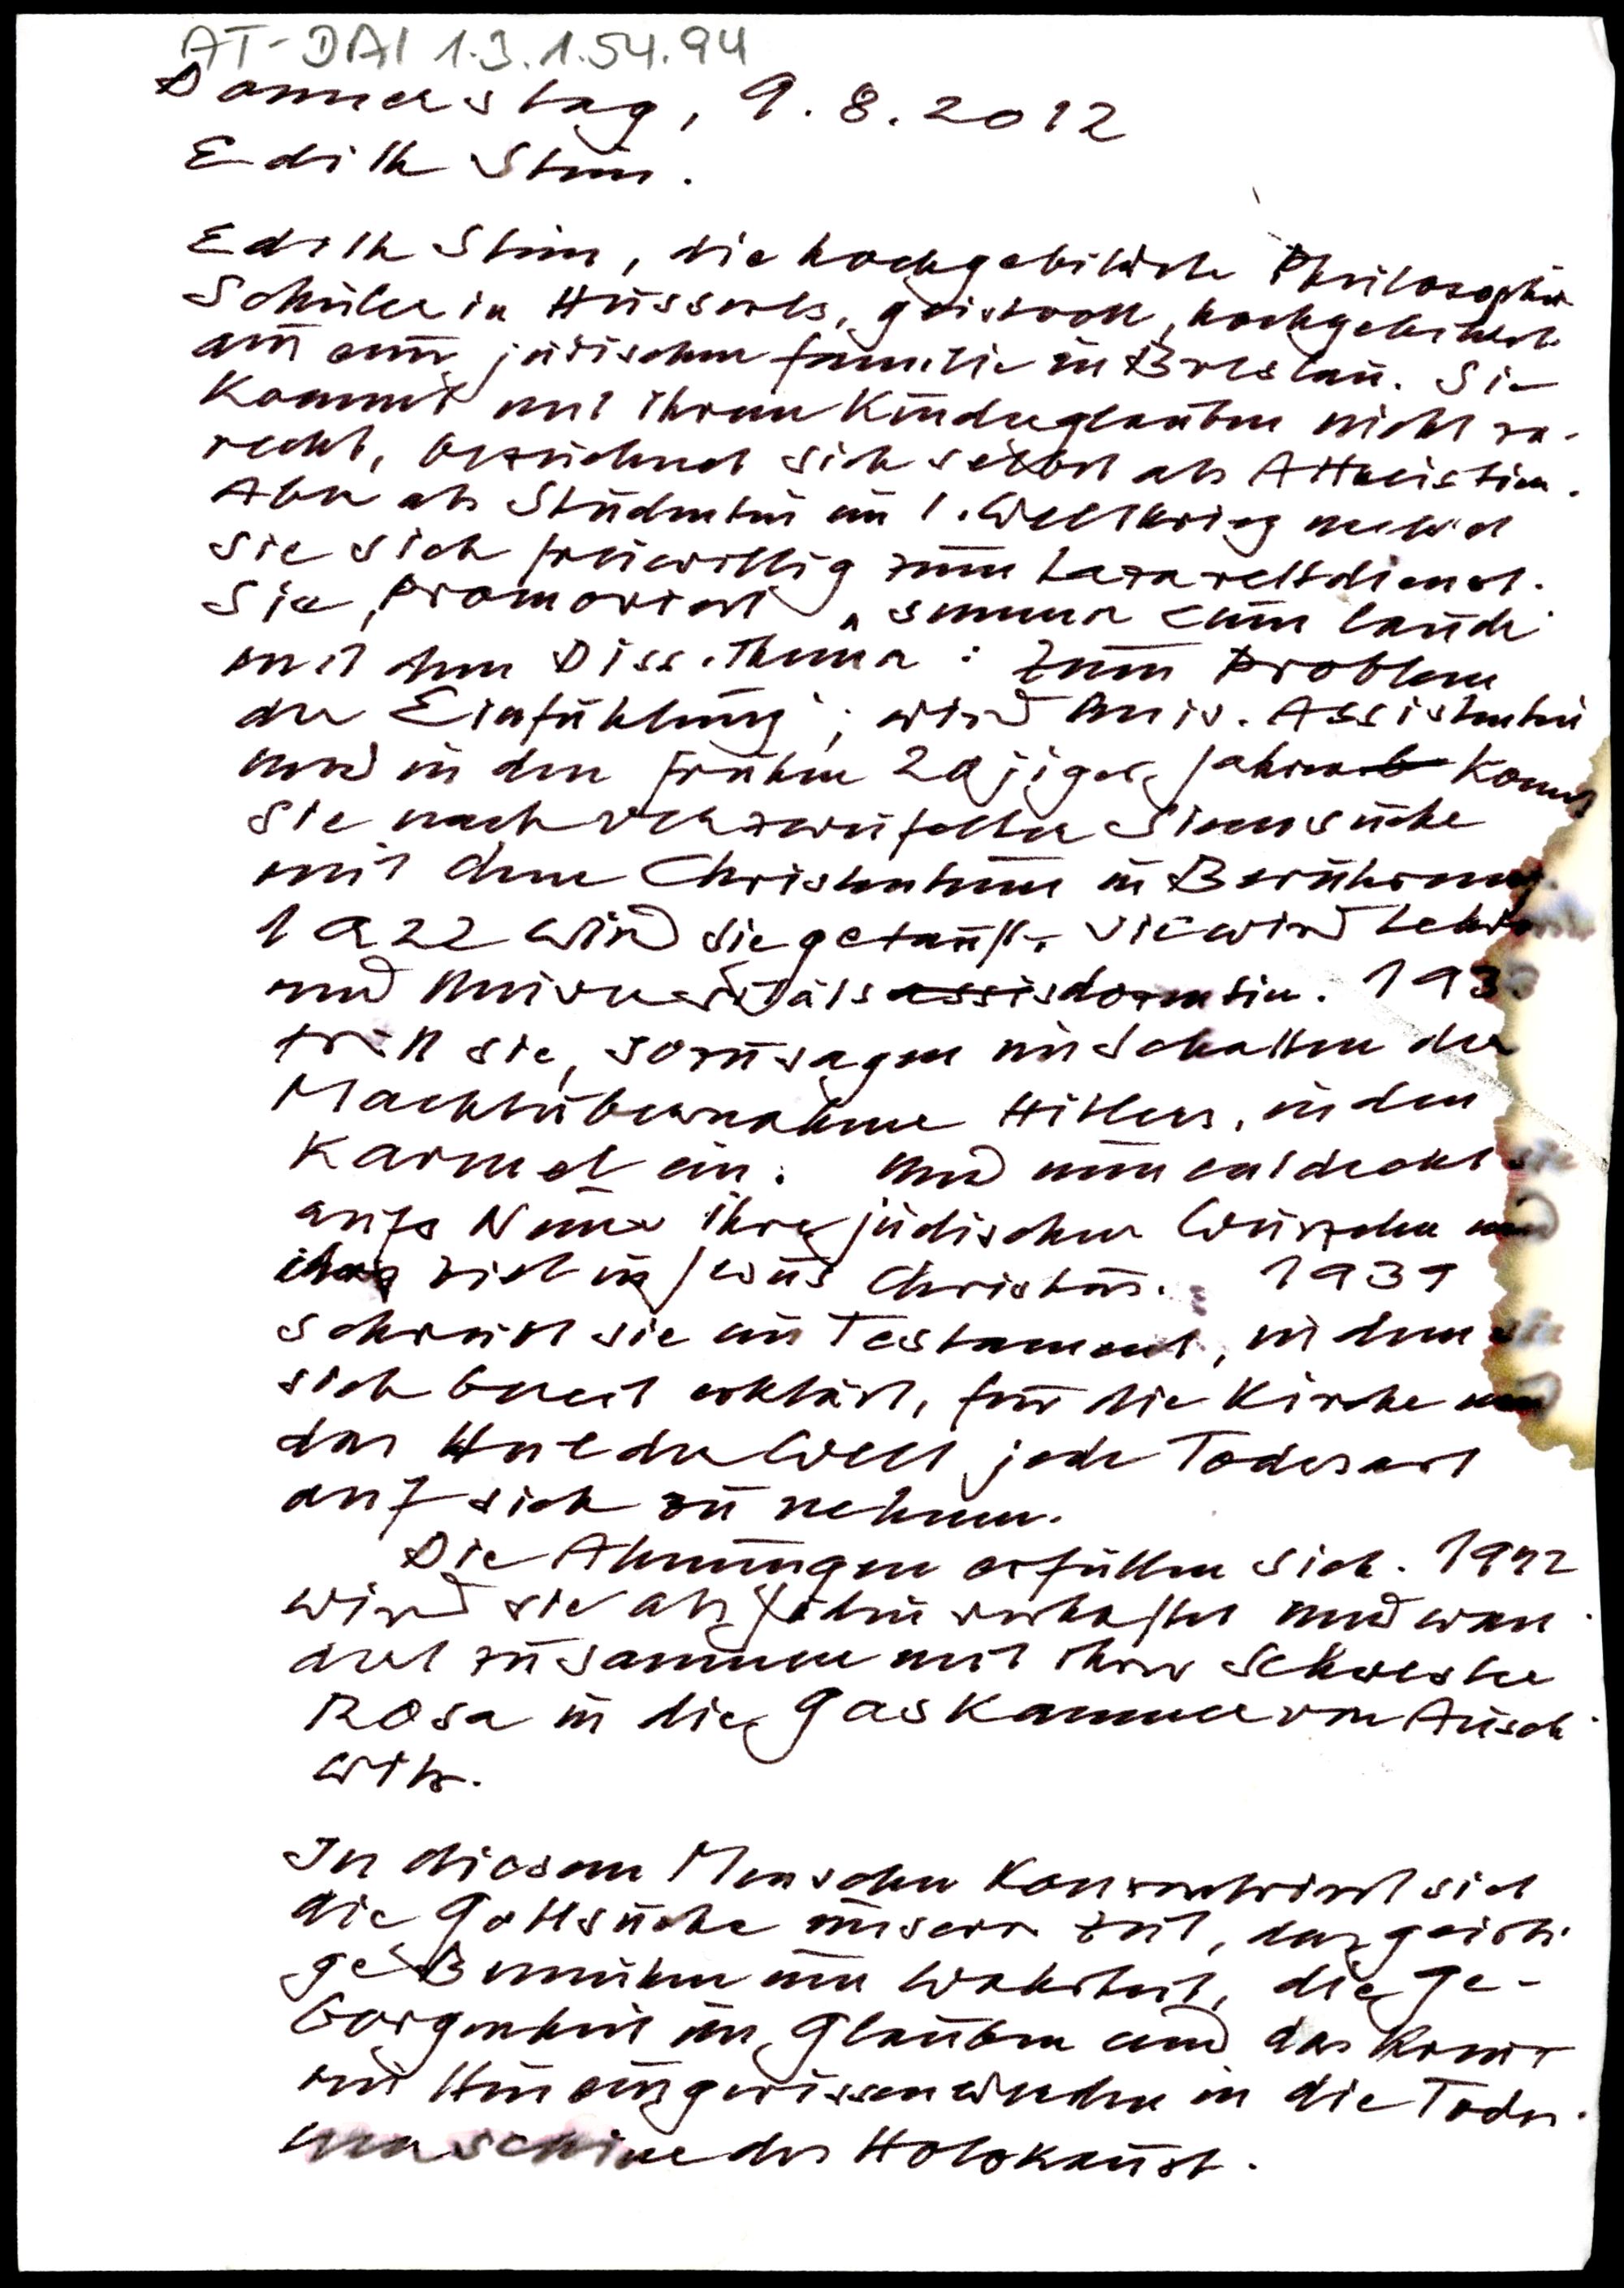 AT-DAI 1.3.1.54.94
Donnerstag, 9.8.2012
Edith Stein.
Edith Stein, die hochgebildete Philosophin
Schülerin Husserls, geistvoll, hochgebildet
aus einer jüdischen Familie in Breslau. Sie
kommt mit ihrem Kinderglauben nicht zu-
recht, bezeichnet sich selbst als Atheistin.
Aber als Studentin im 1. Weltkrieg meldet
sie sich freiwillig zum Lazarettdienst.
Sie promoviert „summa cum laude"
mit dem Diss. Thema: Zum Problem
der Einfühlung", wird Univ. Assistentin
und in den frühen 20jiger Jahren kommt
sie nach verzweifelter Sinnsuche
mit dem Christentum in Berührung.
1922 wird sie getauft. Sie wird Lehrerin
und Universitätsdozentin. 1933
tritt sie, sozusagen im Schatten der
Machtübernahme Hitlers, in den
Karmel ein. Und nun entdeckt sie
aufs Neue ihre jüdischen Wurzeln und
ihr Ziel in Jesus Christus. 1939
schreibt sie ein Testament, in dem sie
sich bereit erklärt, für die Kirche und
das Heil der Welt jede Todesart
auf sich zu nehmen.
Die Ahnungen erfüllen sich. 1942
wird sie als Jüdin verhaftet und wan-
dert zusammen mit ihrer Schwester
Rosa in die Gaskammer von Ausch-
witz.
In diesem Menschen konzentriert sich
die Gottsuche unserer Zeit, das geisti-
ge Bemühen um Wahrheit, die Ge-
borgenheit im Glauben und das
mit Hineingerissenwerden in die Todes-
maschine des Holokaust.